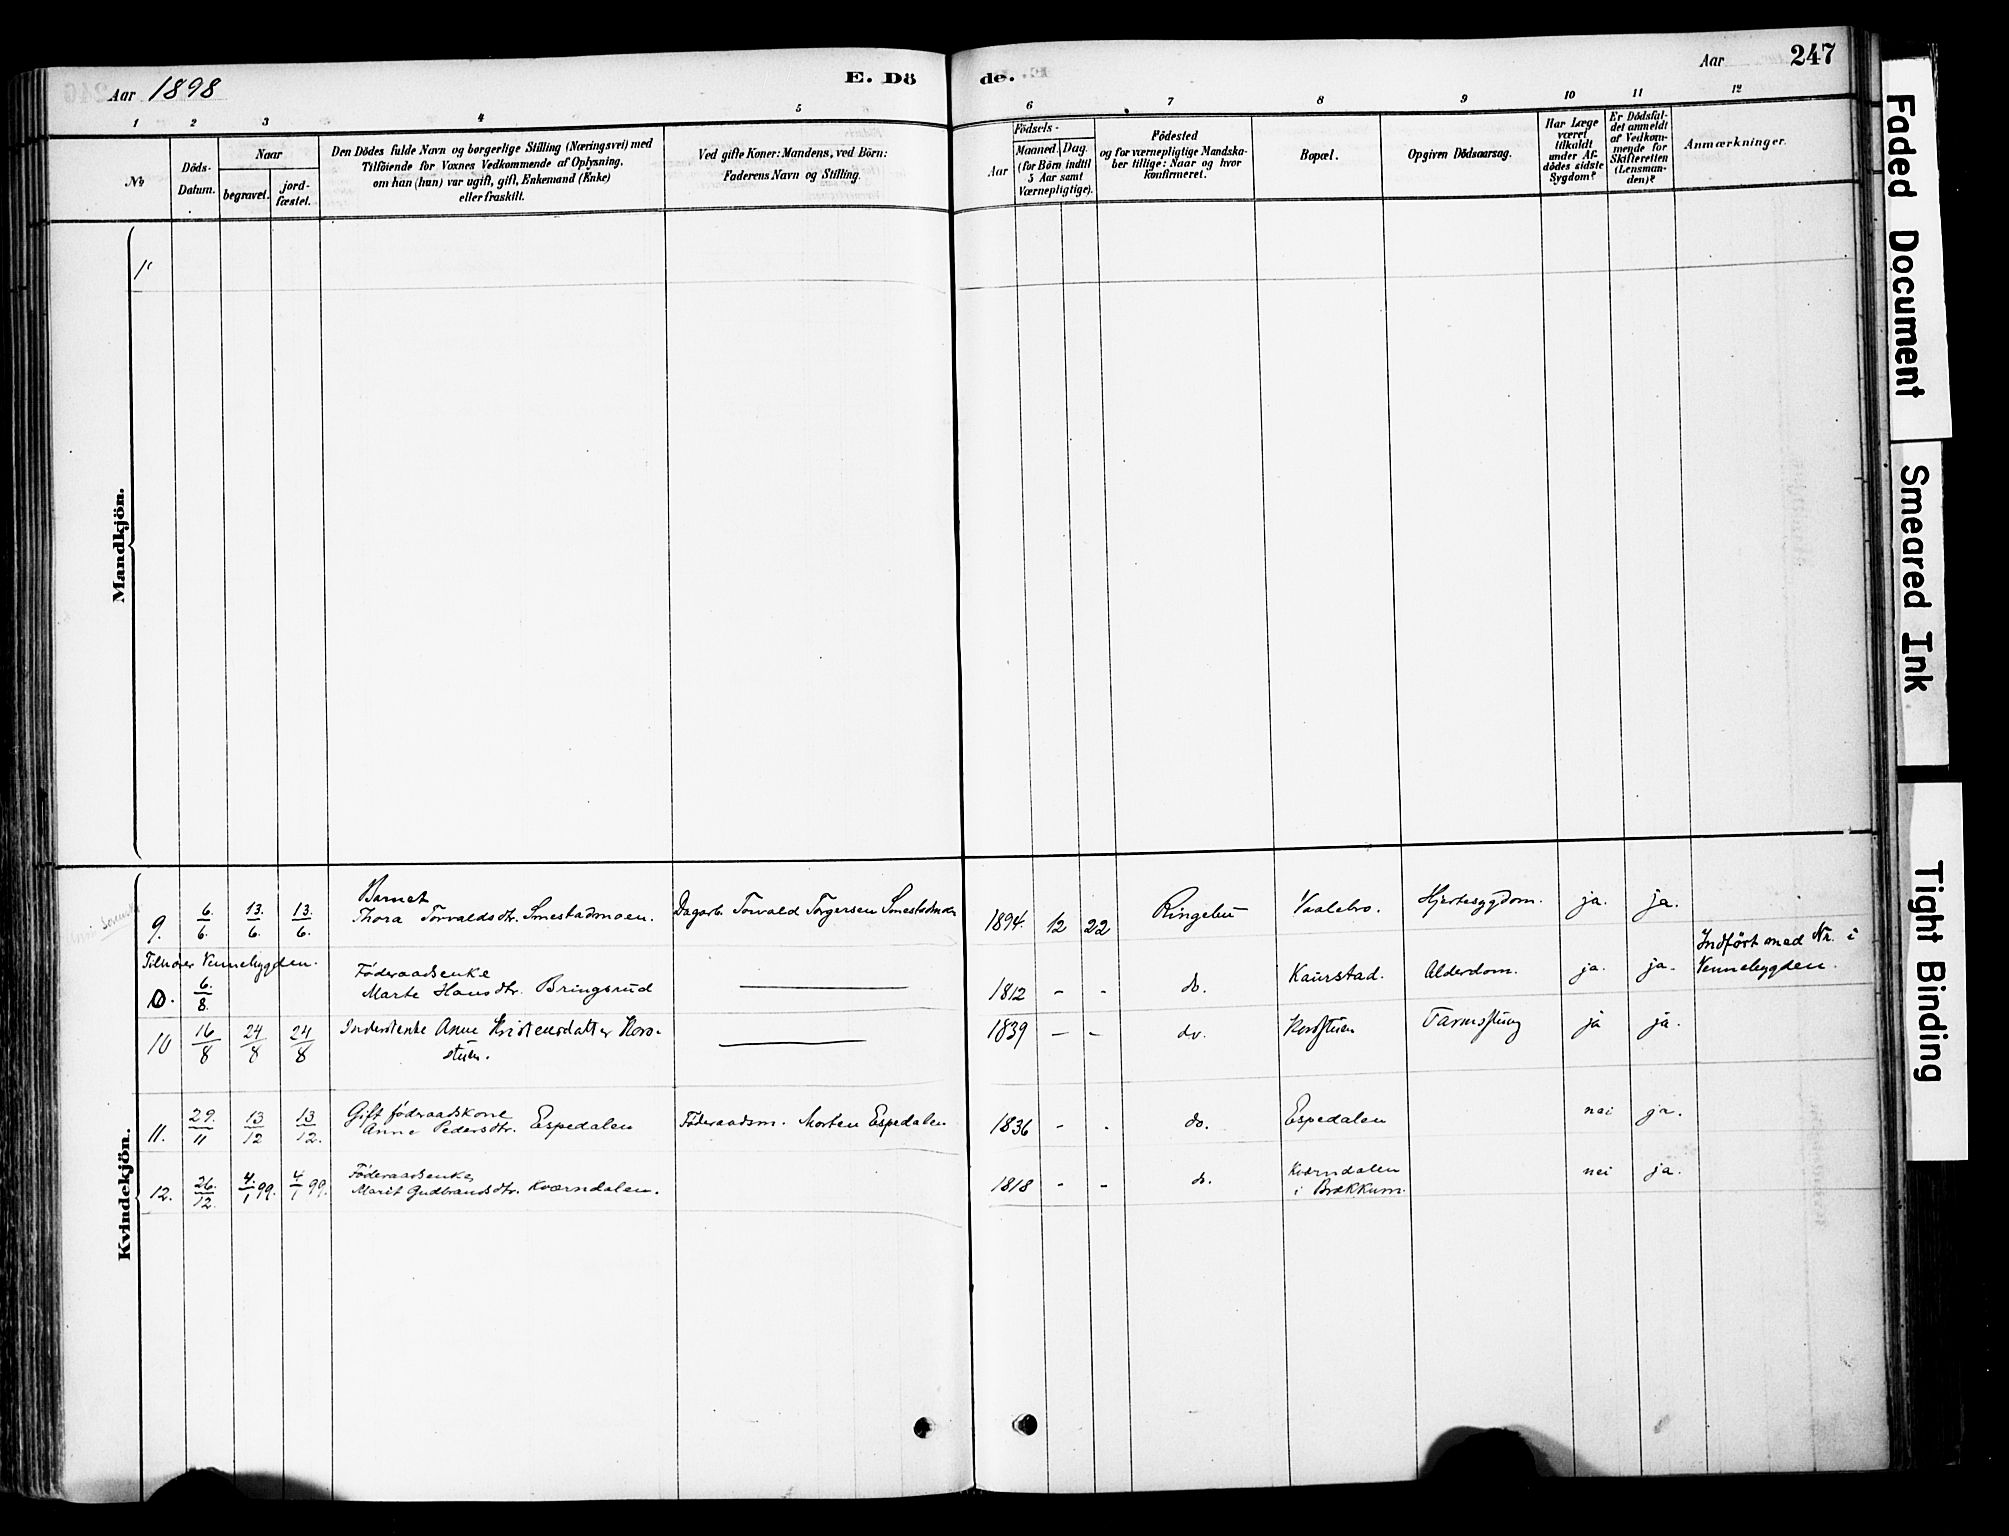 Aar 1898
E. Dö
de.
Aar
247
1 2 3 4 5 6 7 8 9 10 11 12
No
Döds-
Datum.
Naar
begravet.
jord-
fæstet.
Den Dödes fulde Navn og borgerlige Stilling (Næringsvei) med
Tilföiende for Voxnes Vedkommende af Oplysning,
om han (hun) var ugift, gift, Enkemand (Enke)
eller fraskilt.
Ved gifte Koner: Mandens, ved Börn:
Faderens Navn og Stilling.
Födsels-
Aar
Maaned. Dag.
(for Börn indtil
5 Aar samt
Værnepligtige).
Födested
og for værnepligtige Mandska-
ber tillige: Naar og hvor
konfirmeret.
Bopæl.
Opgiven Dödsaarsag.
Har Læge
været
tilkaldt
under Af-
dödes sidste
Sygdom?
Er Dödsfal-
det anmeldt
af Vedkom-
mende for
Skifteretten
(Lensman-
den)?
Anmærkninger.
Mandkjön.
Kvindekjön.
9. 6/6. 13./6. 13./6. Barnet
Thora Torvaldsdtr. Smestadmoen. Dagarb. Torvald Torgersen 1894. 12 22 Ringebu Vaalebro. Hjertesygdom. ja. ja.
Tilhører Vennebygden.
0. 6./8. Føderaadsenke
Marte Hansdtr. Bringsrud 1812 - - do. Kaurstad. Alderdom. ja. ja. Indført med Nr. i
Vennebygden.
10 16/8 24/8 24/8 Inderstenke Anne Kristensdatter
stuen. 1839 - - do. ja ja.
11. 29./11 13/12 13/12. Gift føderaadskone
Anne Pedersdtr. Espedalen Føderaadsm. Morten Espedalen 1836 - . do. Espedalen nei ja.
12. 26./12. 4/1 99. 4/1 99. Føderaadsenke
Marit Gudbrandsdtr. Kværndalen. 1818 - - do. Kværndalen
i Brækkum. nei ja.
Faded Document
Smeared Ink
Tight Binding